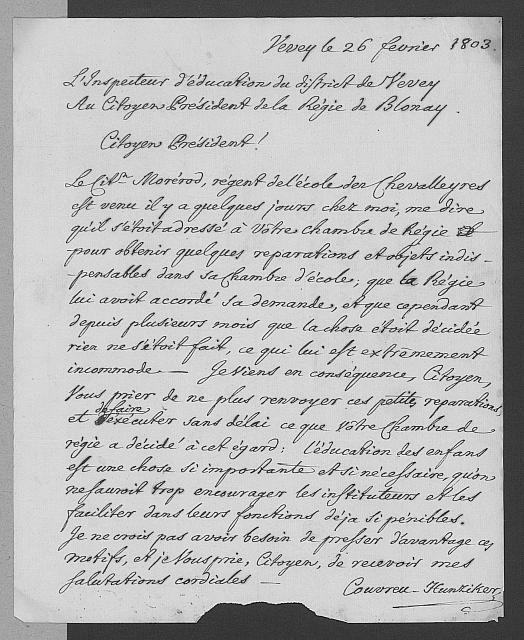 Vevey le 26 fevrier 1803.
L'Inspecteur d'éducation du district de Vevey
Au Citoyen Président de la Régie de Blonay.
Citoyen Président!
Le Cit.n Morérod, régent de l'école den Chevalleyres
est venu il y a quelques jours chez moi, me dire
qu'il s'étoit adressé à Votre chambre de Régie
pour obtenir quelques reparations et objets indis-
-pensables dans sa Chambre d'école; que la Régie
lui avoit accordé sa demande, et que cependant
depuis plusieurs mois que la chose étoit décidée
rien ne s'étoit fait, ce qui lui est extrêmement
incommode — Je Viens en conséquence, Citoyen,
Vous prier de ne plus renvoyer ces petites reparations,
de faire
et exécuter sans délai ce que Votre Chambre de
régie a décidé à cet égard; l'éducation des enfans
est une chose si importante et si nécessaire, qu'on
ne sauroit trop encourager les instituteurs et les
faciliter dans leurs fonctions déja si pénibles.
Je ne crois pas avoir besoin de presser d'avantage ces
motifs, et je Vous prie, Citoyen, de recevoir mes
salutations cordiales —
Couvreu-Hunziker